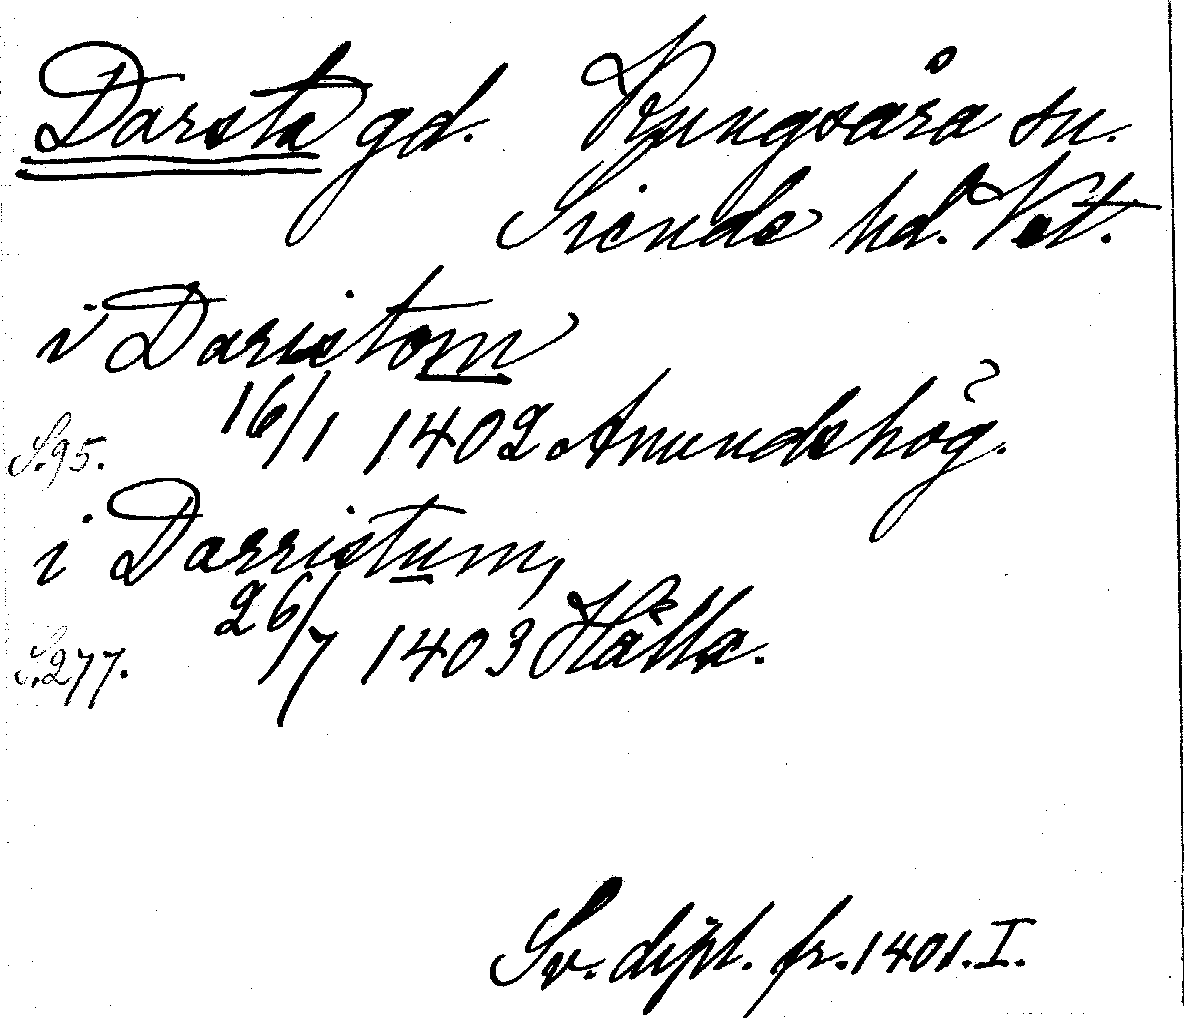 Darsta gd. Kungsåra sn.
Siende hd. Vst.
i Daristom
16/1 1402 Anundshög.
S. 95.
i Darristum,
26/7 1403 Hälla.
S. 277.
Sv. dipl. fr. 1401. I.